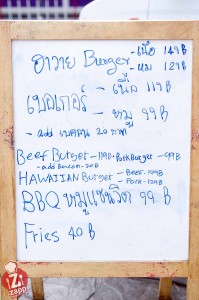 ฮาวาย Burger - เนื้อ 149 ฿
- หมู 129 ฿
เบอเกอร์ - เนื้อ 119 ฿
- หมู 99 ฿
- add เบคอน 20 บาท
Beef Burger - 119 ฿ - Pork Burger - 99 ฿
- add Bacon - 20 ฿
HAWAIIAN Burger - Beef - 149 ฿
- Pork - 129 ฿
BBQ หมูแซนวิด 99 ฿
Fries 40 ฿
iZi
zapp